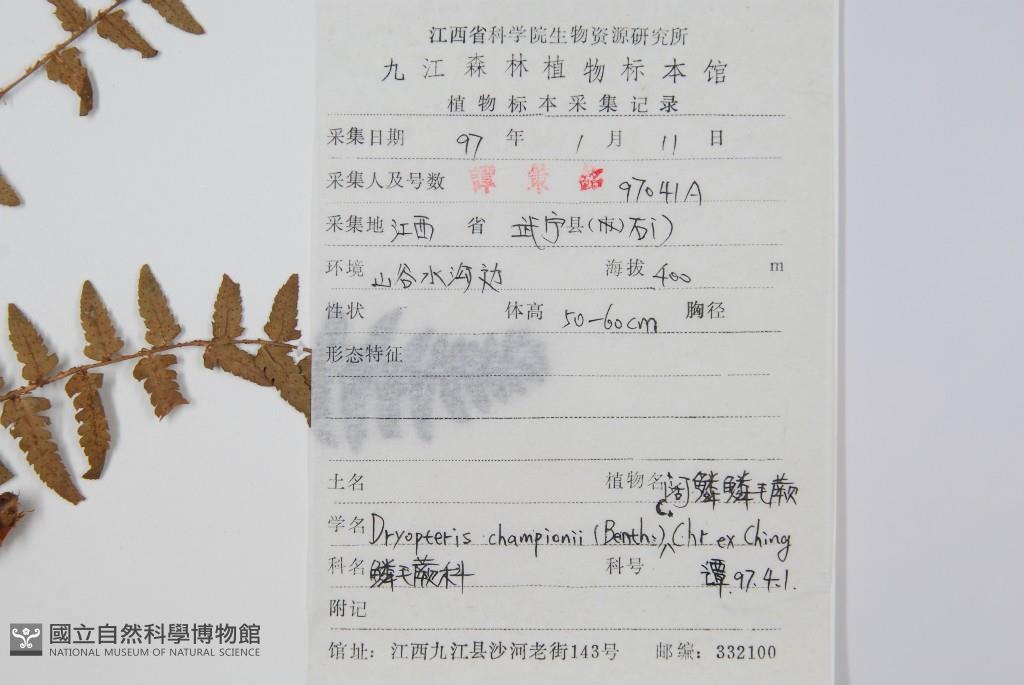 江西省科学院生物资源研究所
九江森林植物标本馆
植物标本采集记录
采集日期 97 年 1 月 11 日
采集人及号数 譚策銘 97041A
采集地 江西 省 武宁县(石门)
环境 山谷水沟边 海拔 400 m
性状 体高 50-60cm 胸径
形态特征
土名 植物名 阔鳞鳞毛蕨
学名 Dryopteris championii (Benth.) C. Chr. ex Ching
科名 鳞毛蕨科 科号 譚 97.4.1.
附记
馆址：江西九江县沙河老街143号 邮编：332100
國立自然科學博物館
NATIONAL MUSEUM OF NATURAL SCIENCE